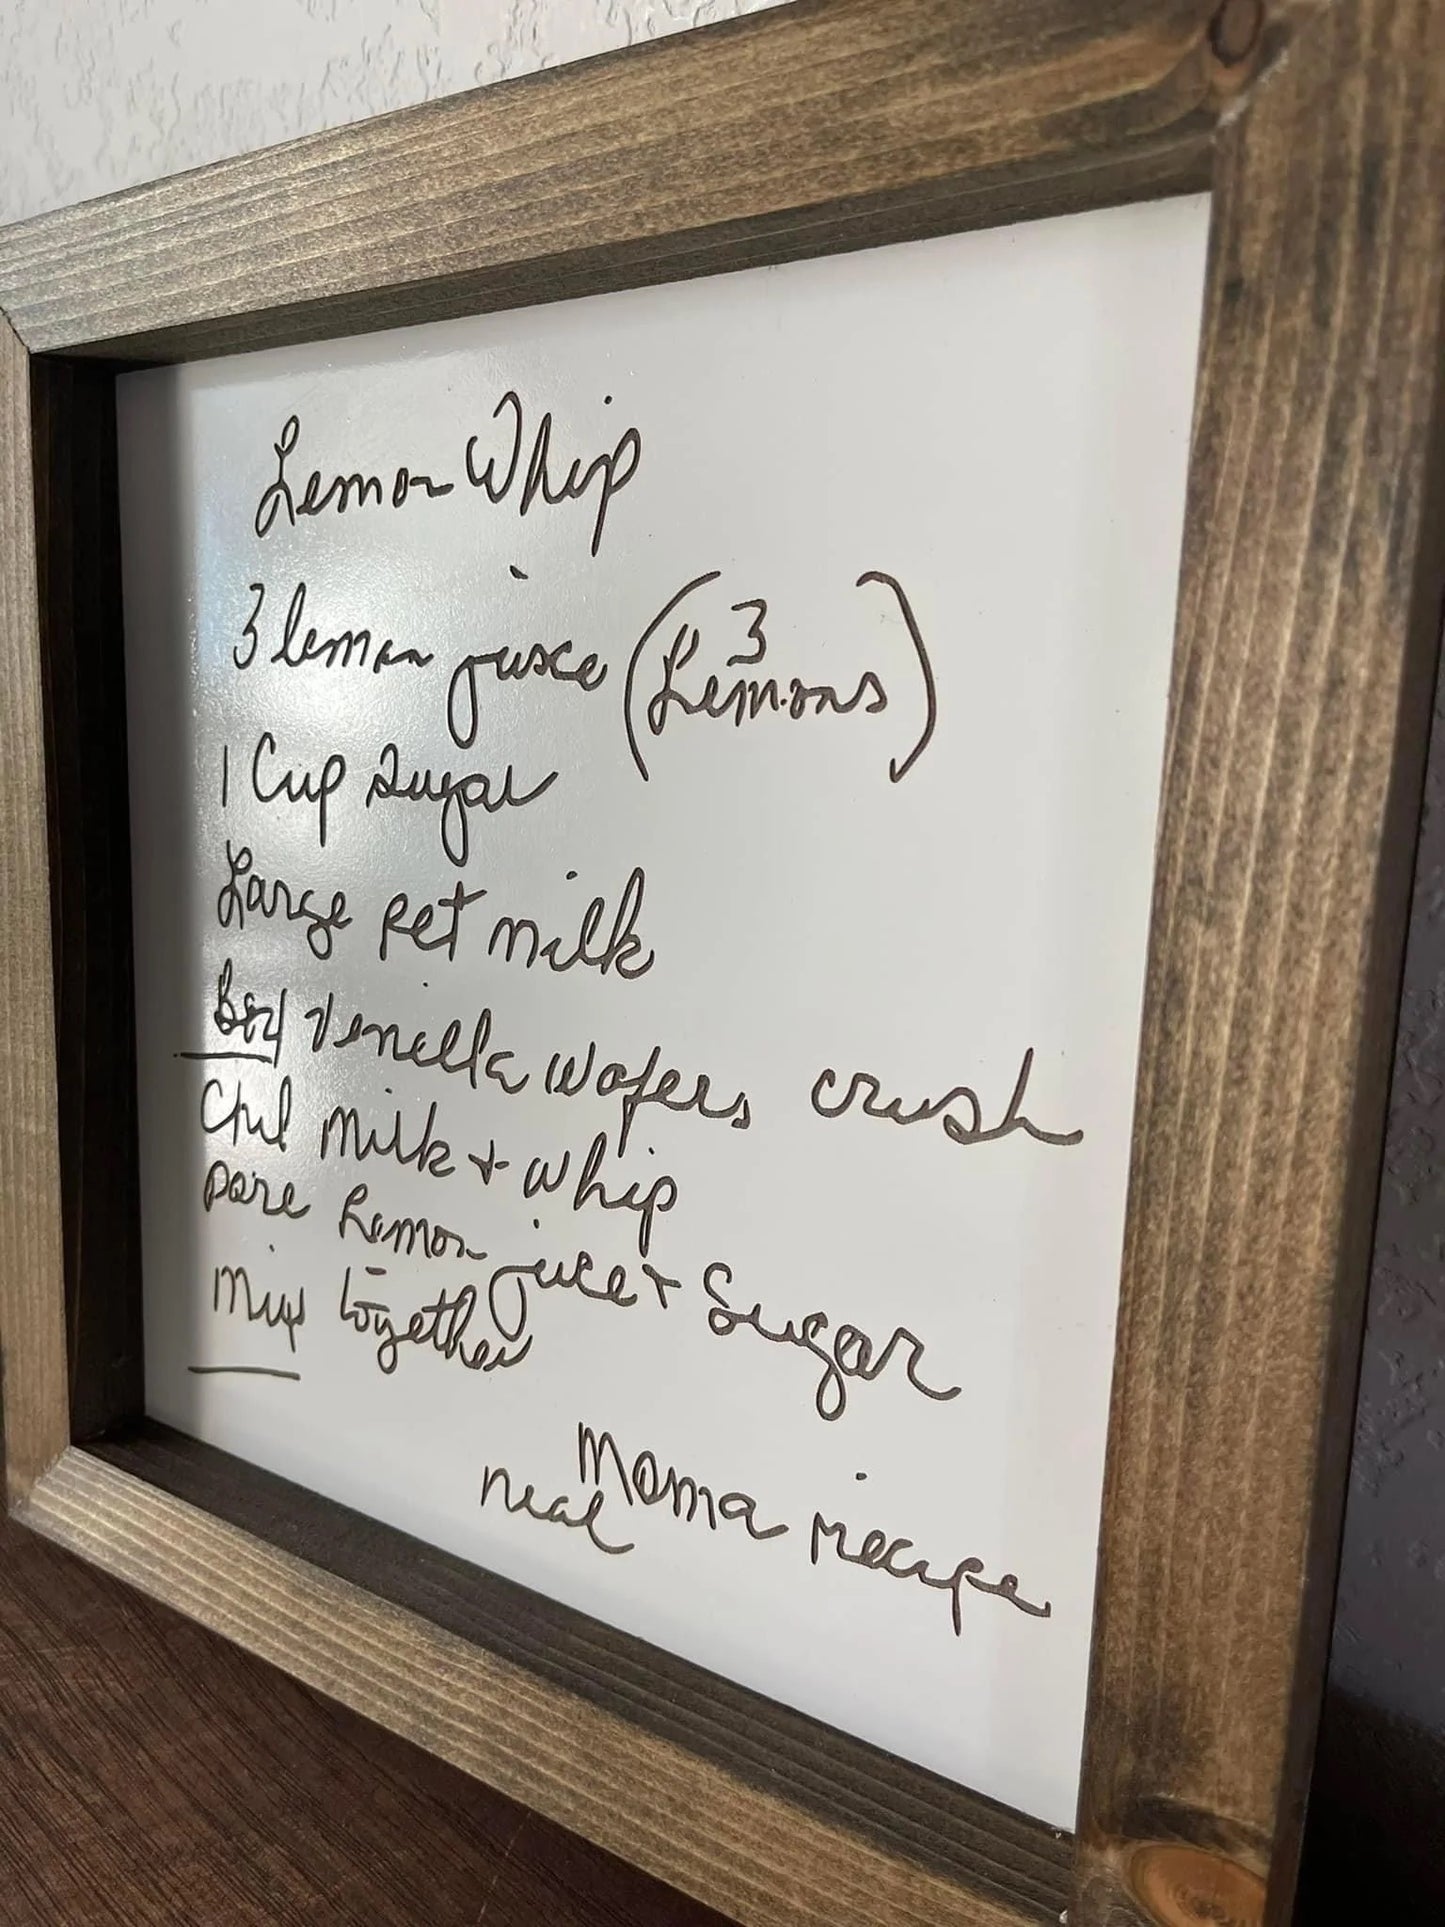 Lemon Whip
3 lemon juice (3 Lemons)
1 Cup sugar
Large pet milk
Box Venilla wafers crush
Chil milk + whip
pore Lemon juice + Sugar
Mix together
Neal Moma recipe